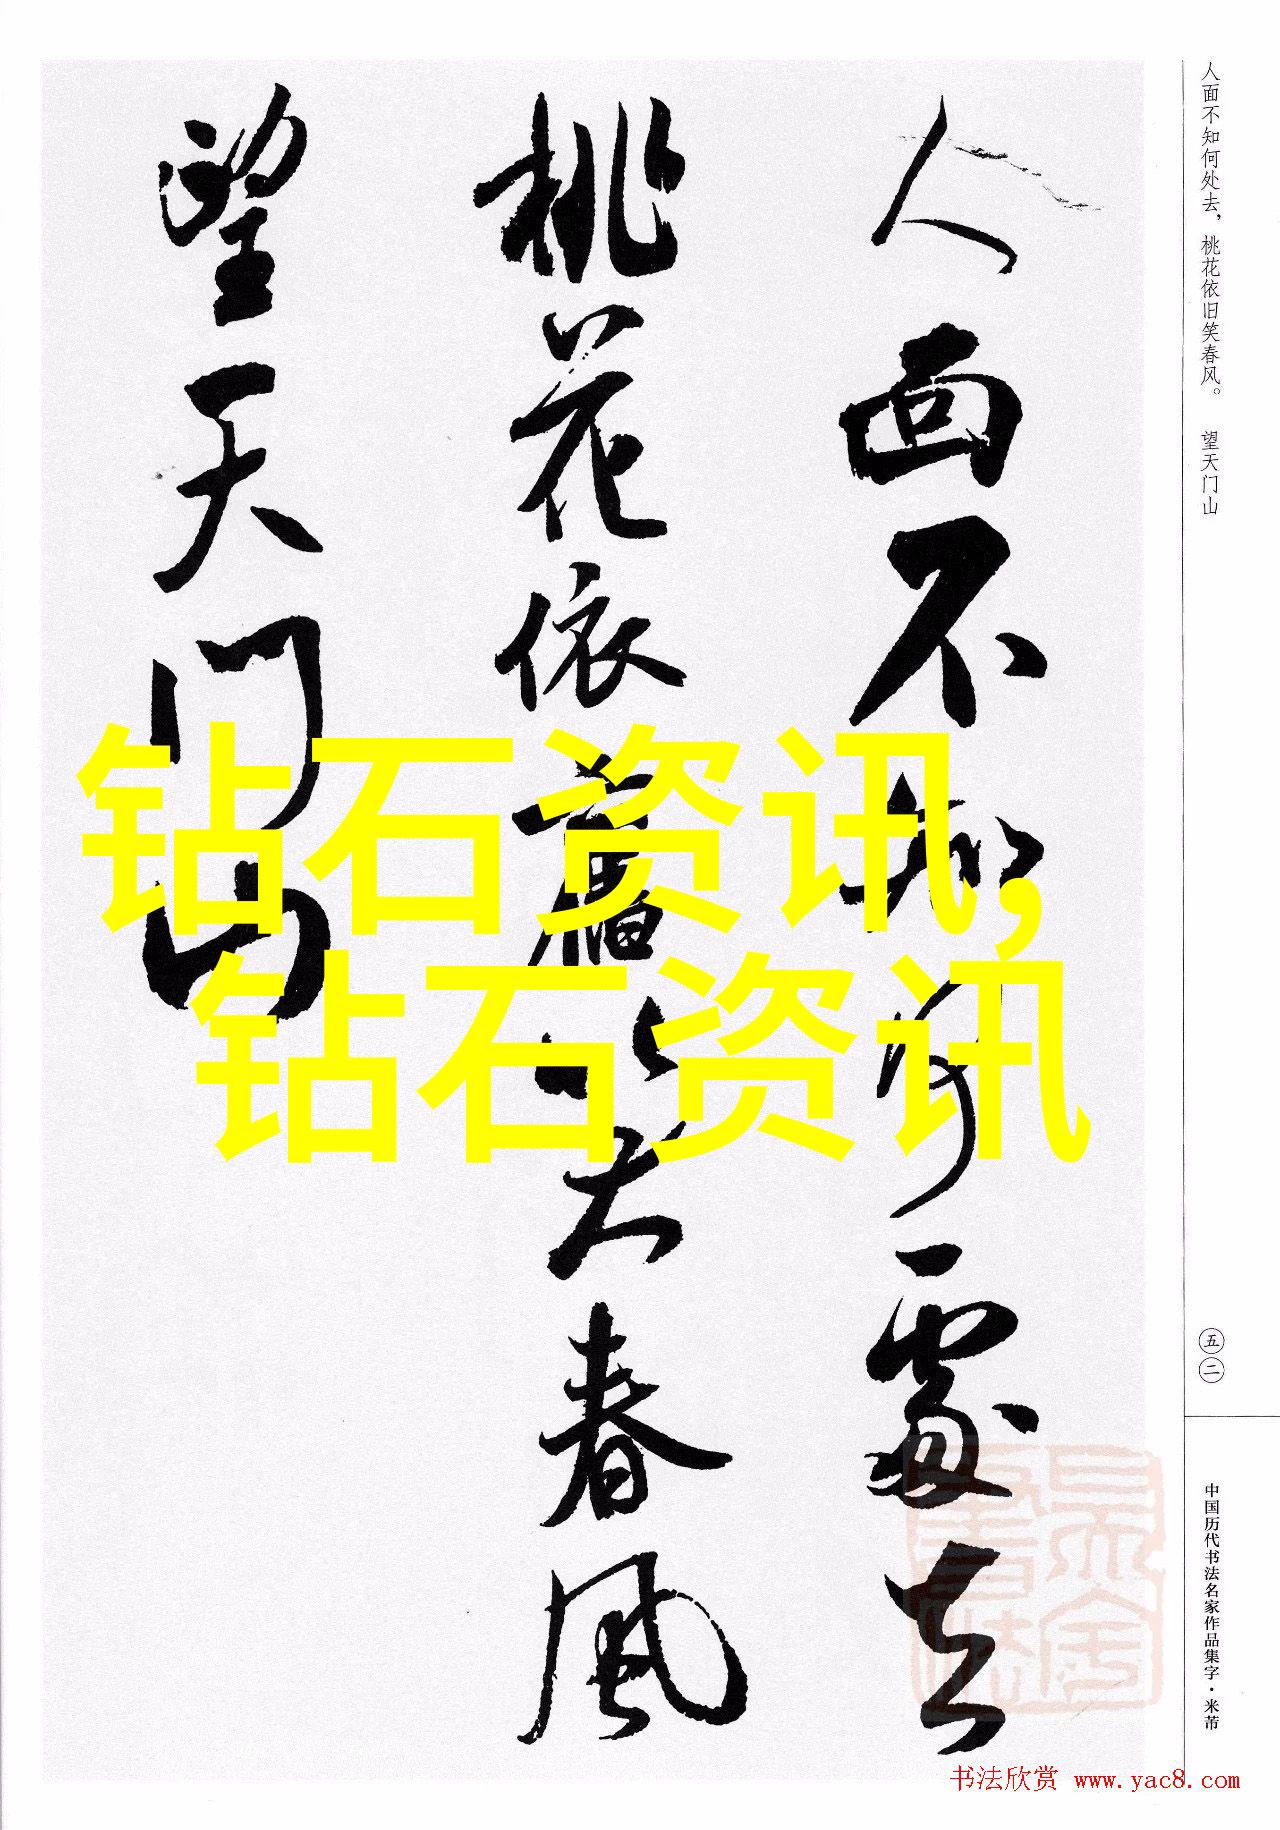 人面不知何处去，桃花依旧笑春风。 望天门山
人面不知何處去
桃花依舊笑春風
望天门山
钻石资讯,
钻石资讯
五二
中国历代书法名家作品集字·米芾
书法欣赏 www.yac8.com